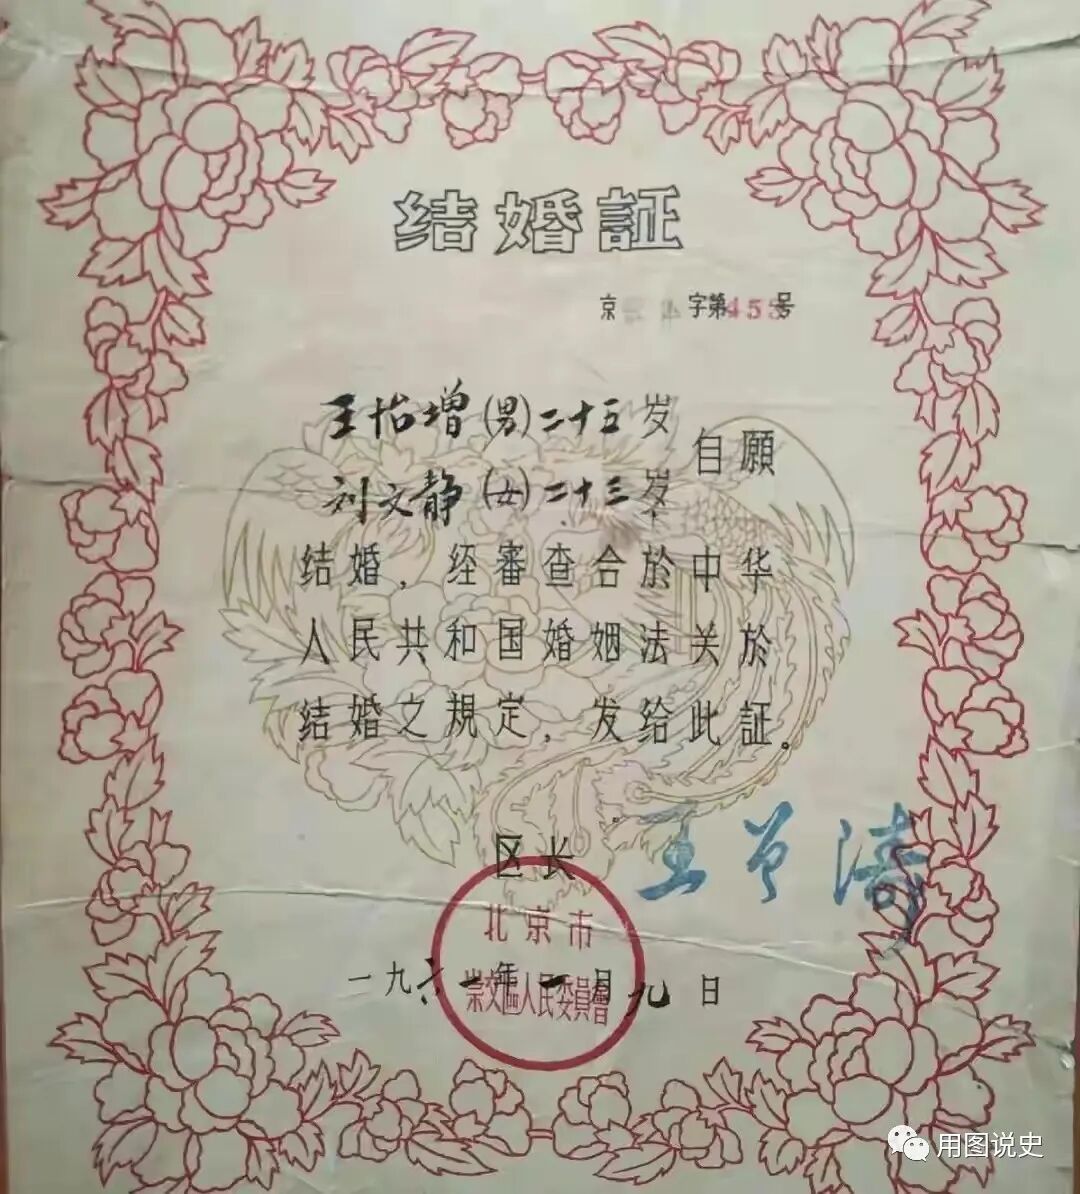 结婚証
京 字第453号
王怡增(男)二十五岁
自願
刘文静(女)二十三岁
结婚，经審查合於中华
人民共和国婚姻法关於
结婚之規定，发给此証。
区长 王曾涛
北京市
崇文區人民委員會
一九六一年一月九日
用图说史